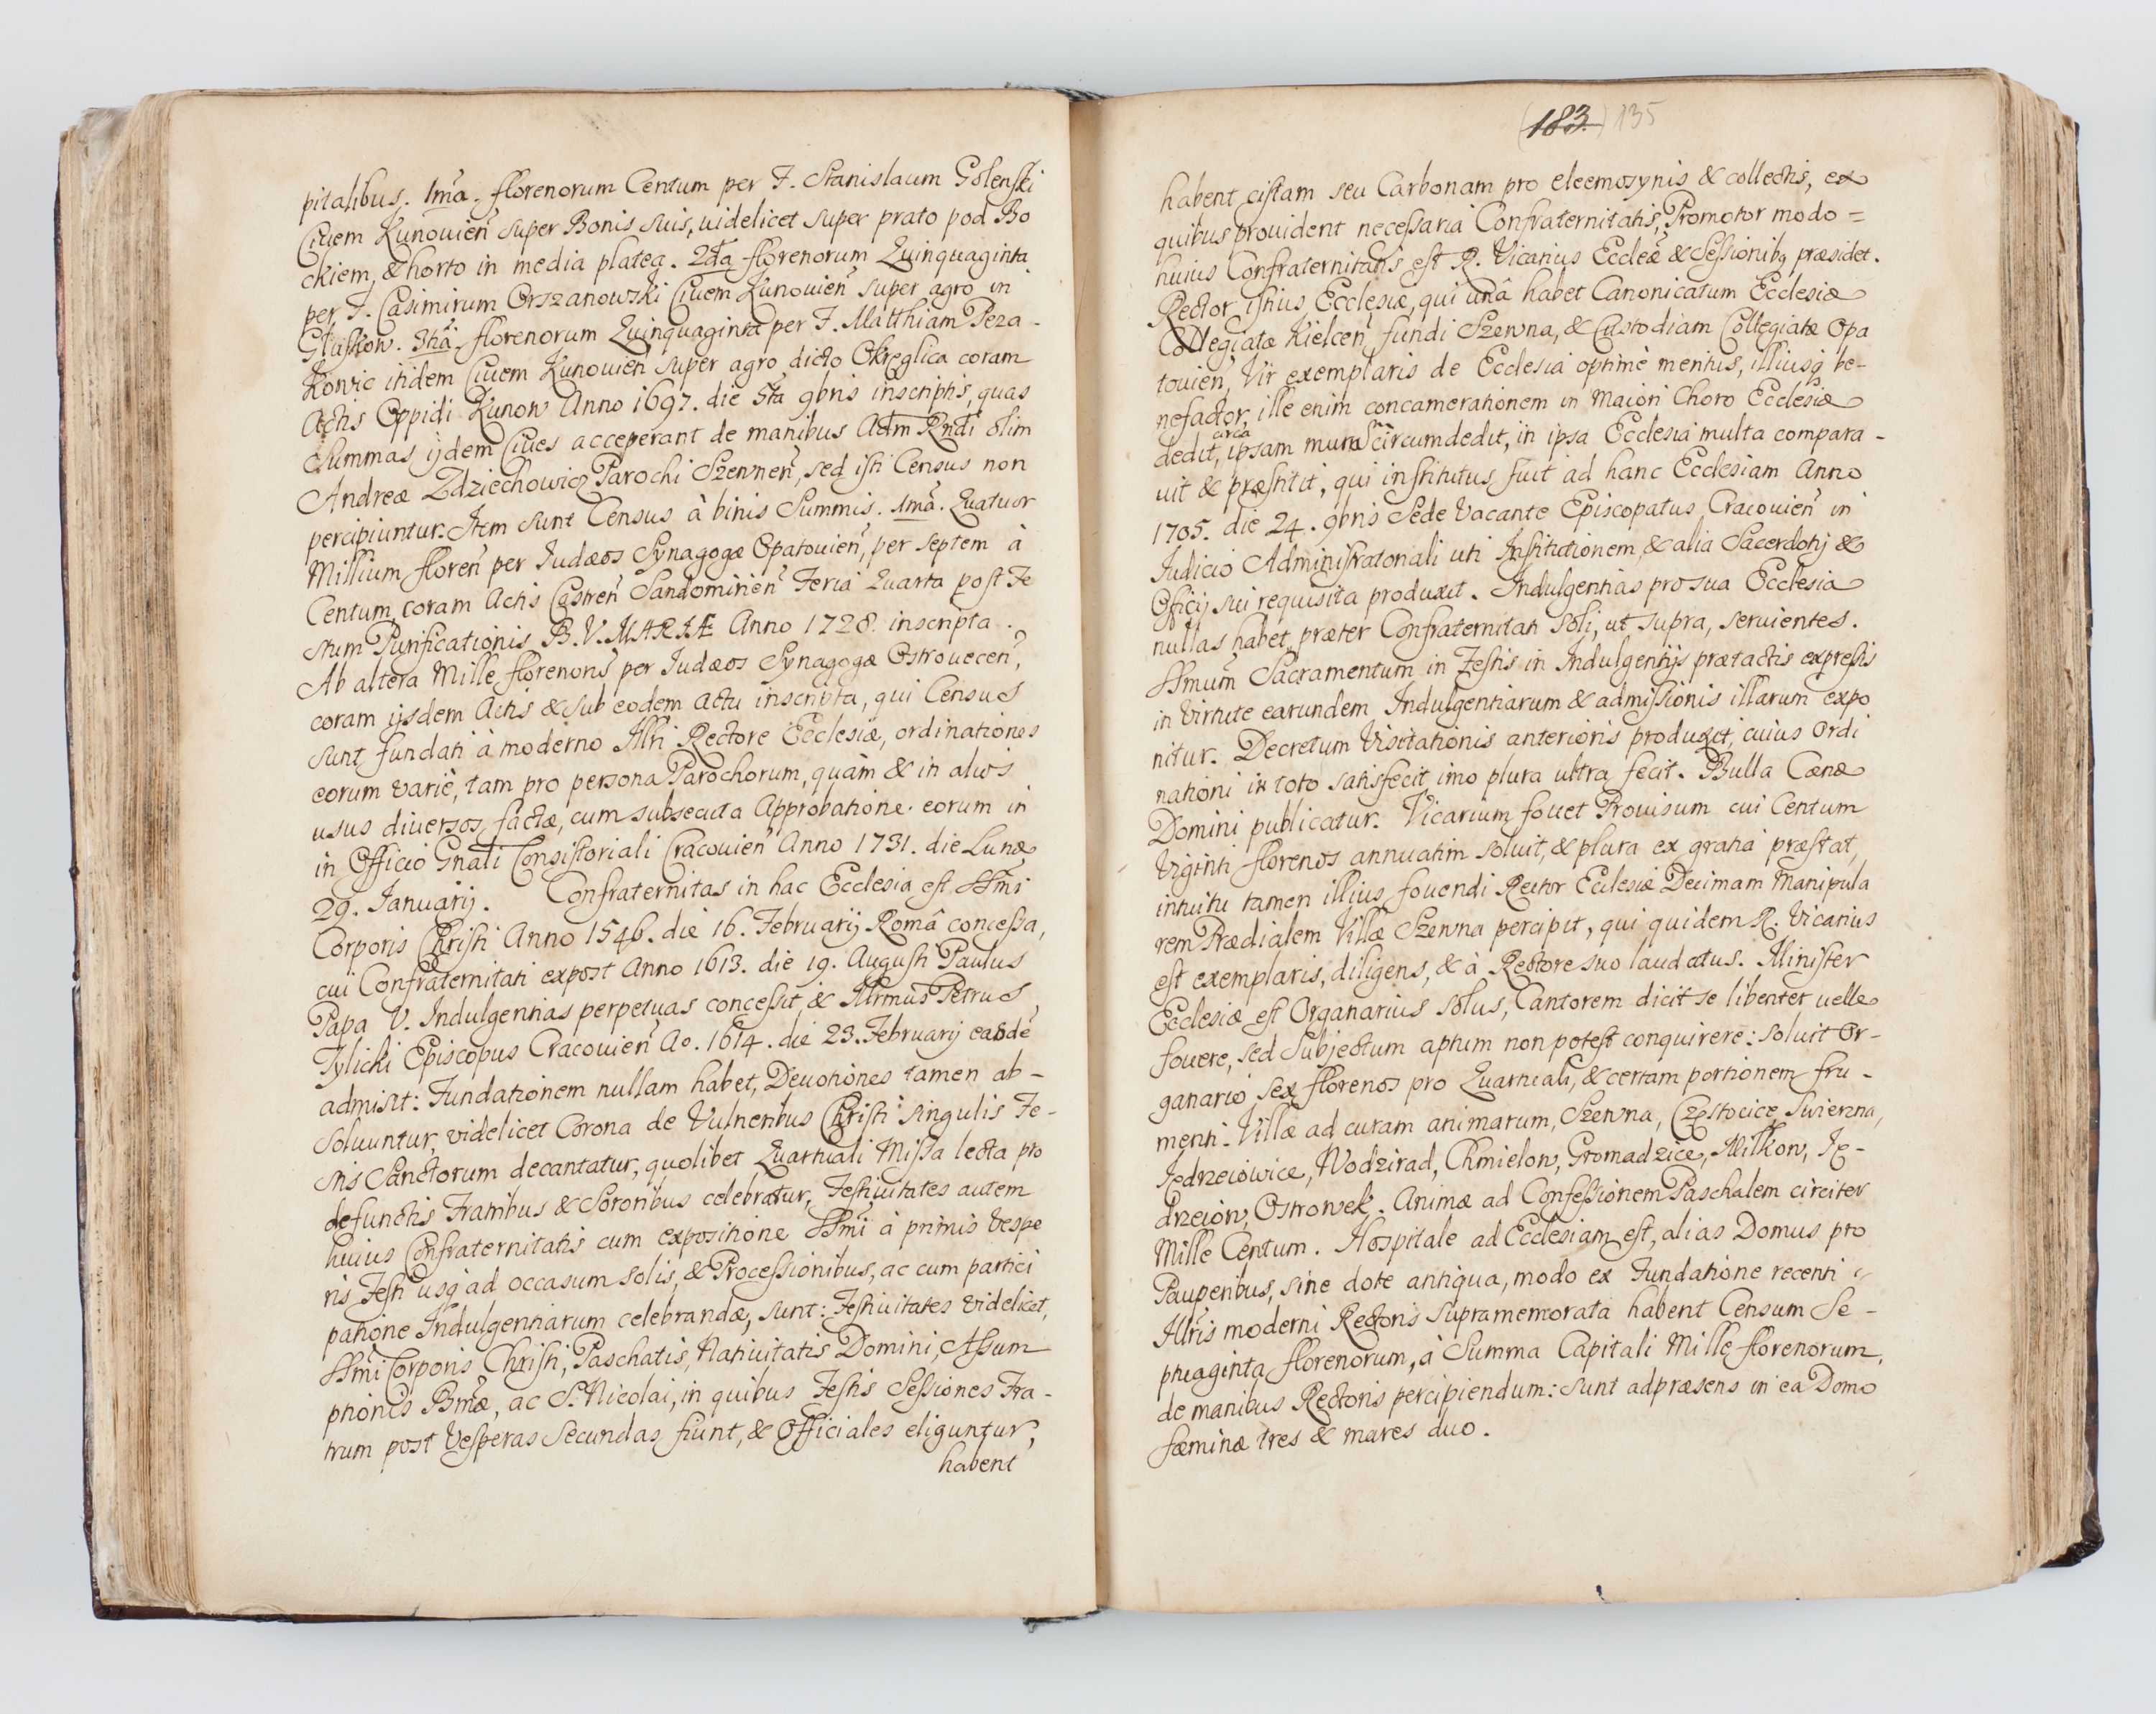 pitalibus. 1mã. florenorum Centum per F. Stanislaum Golenski
Ciuem Kunouien̄ super Bonis suis, uidelicet super prato pod Bo
ckiem, & horto in media platea. 2da florenorum Quinquaginta
per F. Casimirum Orszanowski Ciuem Kunouien̄ super agro in
Głaskow. 3tiã. florenorum Quinquaginta per F. Matthiam Peza-
kowic itidem Ciuem Kunouien̄ super agro dicto Okręglica coram
Actis Oppidi Kunow Anno 1697. die 5ta 9bris inscriptis, quas
Summas ijdem Ciues acceperant de manibus Adm Rndi olim
Andreæ Zdziechowicz Parochi Szewnen̄, sed isti Census non
percipiuntur. Item sunt Census à binis Summis. 1mã. Quatuor
Millium floren̄ per Judæos Synagogæ Opatouien̄, per septem à
Centum, coram Actis Castren̄ Sandomirien̄ Feria Quarta post Fe
stum Purificationis B. V. MARIÆ Anno 1728. inscripta.
Ab altera Mille florenorũ per Judæos Synagogæ Ostrouecen̄,
coram ijsdem Actis & sub eodem actu inscripta, qui Census
sunt fundati à moderno Illri Rectore Ecclesiæ, ordinationes
eorum variè, tam pro persona Parochorum, quàm & in alios
usus diversos factæ, cum subsecuta Approbatione eorum in
in Officio Gnali Consistoriali Cracouien̄ Anno 1731. die Lunæ
29. Januarij. Confraternitas in hac Ecclesia est SSmi
Corporis Christi Anno 1546. die 16. Februarij Româ concessa,
cui Confraternitati expost Anno 1613. die 19. Augusti Paulus
Papa V. Indulgentias perpetuas concessit, & Illrmus Petrus
Tylicki Episcopus Cracouien̄ Ao. 1614. die 23. Februarij easdē
admisit: Fundationem nullam habet, Deuotiones tamen ab-
soluuntur, videlicet Corona de Vulneribus Christi singulis Fe-
stis Sanctorum decantatur, quolibet Quartuali Missa lecta pro
defunctis Fratribus & Sororibus celebratur, Festiuitates autem
huius Confraternitatis cum expositione SSmi à primis Vespe
ris Festi usq̨ ad occasum solis, & Processionibus, ac cum partici
patione Indulgentiarum celebrandæ, sunt: Festiuitates videlicet,
SSmi Corporis Christi, Paschatis, Natiuitatis Domini, Assum
ptionis Bmæ, ac S. Nicolai, in quibus Festis Sessiones Fra-
trum post Vesperas Secundas fiunt, & Officiales eliguntur,
habent
(183.) 135
habent cistam seu Carbonam pro eleemosynis & collectis, ex
quibus prouident necessaria Confraternitatis, Promotor modo =
huius Confraternitatis est R. Vicarius Eccleæ & Sessionibq præsidet.
Rector istius Ecclesiæ, qui unâ habet Canonicatum Ecclesiæ
Collegiatæ Kielcen̄ fundi Szewna, & Custodiam Collegiatæ Opa
touien̄, Vir exemplaris de Ecclesia optimè meritus, illiusq̨ be-
nefactor, ille enim concamerationem in Maiori Choro Ecclesiæ
circa
dedit, ipsam muro circumdedit, in ipsa Ecclesia multa compara-
uit & præstitit, qui institutus fuit ad hanc Ecclesiam Anno
1705. die 24. 9bris Sede Vacante Episcopatus Cracouien̄ in
Judicio Administratoriali uti Institutionem, & alia Sacerdotij &
Officij sui requisita produxit. Indulgentias pro sua Ecclesia
nullas habet, præter Confraternitati soli, ut supra, seruientes.
SSmum̄ Sacramentum in Festis in Indulgentijs prætactis expressis
in Virtute earundem Indulgentiarum & admissionis illarum expo
nitur. Decretum Visitationis anterioris produxit, cuius Ordi
nationi in toto satisfecit imo plura ultra fecit. Bulla Cænæ
Domini publicatur. Vicarium fouet Prouisum cui Centum
Viginti florenos annuatim soluit, & plura ex gratia præstat,
intuitu tamen illius fouendi Rector Ecclesiæ Decimam Manipula
rem Prædialem Villæ Szewna percipit, qui quidem R. Vicarius
est exemplaris, diligens, & à Rectore suo laudatus. Minister
Ecclesiæ est Organarius solus, Cantorem dicit se libenter uelle
fouere, sed Subjectum aptum non potest conquirere: soluit Or-
ganario sex florenos pro Quartuali, & certam portionem fru-
menti. Villæ ad curam animarum, Szewna, Częstocice, Swierzna,
Jędrzeiowice, Wodzirad, Chmielow, Gromadzice, Milkow, Ję-
drzeiow, Ostrowek. Animæ ad Confessionem Paschalem circiter
Mille Centum. Hospitale ad Ecclesiam est, alias Domus pro
Pauperibus, sine dote antiqua, modo ex Fundatione recenti
Illris moderni Rectoris supramemorata habent Censum Se-
ptuaginta florenorum, à Summa Capitali Mille florenorum,
de manibus Rectoris percipiendum: sunt ad præsens in ea Domo
fæminæ tres & mares duo.